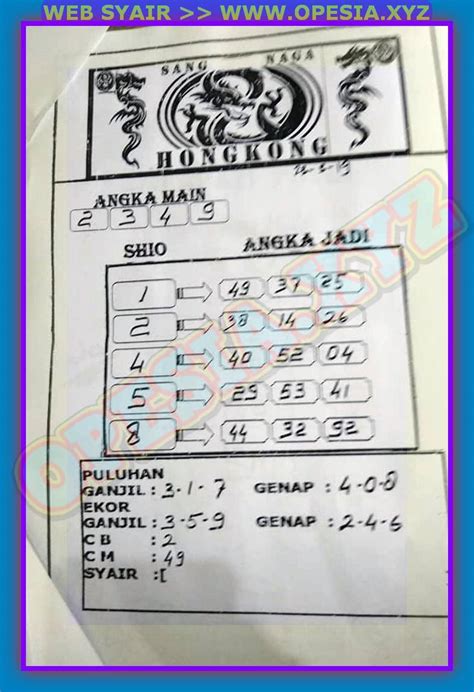 WEB SYAIR >> WWW.OPESIA.XYZ
SANG NAGA
HONGKONG
22-3-19
ANGKA MAIN
2 3 4 9
SHIO ANGKA JADI
1 49 37 25
2 38 14 26
4 40 52 04
5 29 53 41
8 44 32 92
PULUHAN
GANJIL : 3-1-7 GENAP : 4-0-8
EKOR
GANJIL : 3-5-9 GENAP : 2-4-6
C B : 2
C M : 49
SYAIR :[
OPESIA.XYZ